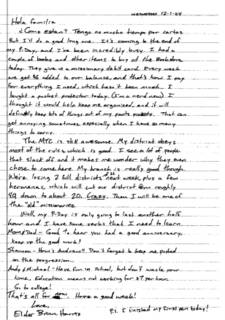 Hola familia
¿Como estan? Tengo mucho tiempo por cartas
But I'll do a good long one. It's coming to the end of
my P-Day, and I've been incredibly busy. I had a
couple of books and other items to buy at the bookstore
today. They give us missionary child card. Every week
we get $6 added to our balance, and that's how I pay
for everything I need, which hasn't been much. I
bought a pocket protector today. (I'm a nerd now) I
thought it would help me organized, and it will
definitely keep lots of things out of my pants pockets. That can
get annoying sometimes especially when I have so many
things to carry.
The MTC is still awesome. My district obeys
most of the rules, which is good. I see a lot of people
that slack off and it makes me wonder why they even
chose to come here. My branch is really good though.
We're losing 2 full districts next week plus a few
hermanas, which will cut our district from roughly
40 down to about 20. Crazy. Then I will be one of
the "old" missionaries.
Well, my P-Day is only going to last another half
hour and I have some verbs that I need to learn.
Mom & Dad - Good to hear you had a good anniversary.
Keep up the good work!
Shannon - How's Andrew? Don't forget to keep me posted
on the progression.
Andy & Michael - Have fun in School, but don't waste your
time. Education means not working for $7 per hour.
Go to college!
That's all for now. Have a good week!
Love,
Elder Brown Harris
P.S. I finished my first pen today!